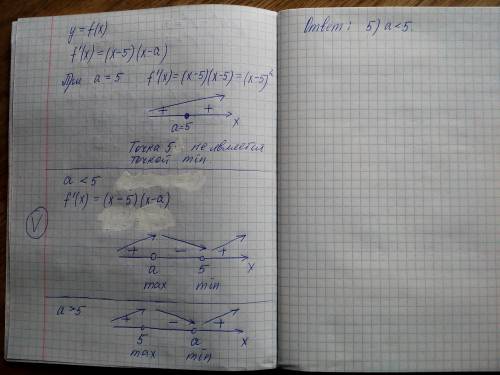 y = f(x)
f'(x) = (x-5)(x-a)
При a = 5 f'(x) = (x-5)(x-5) = (x-5)²
+ +
a=5 x
Точка 5 не является
точкой min
a < 5
f'(x) = (x-5)(x-a)
V
+ - +
a 5 x
max min
a > 5
+ - +
5 a x
max min
Ответ: 5) a < 5.